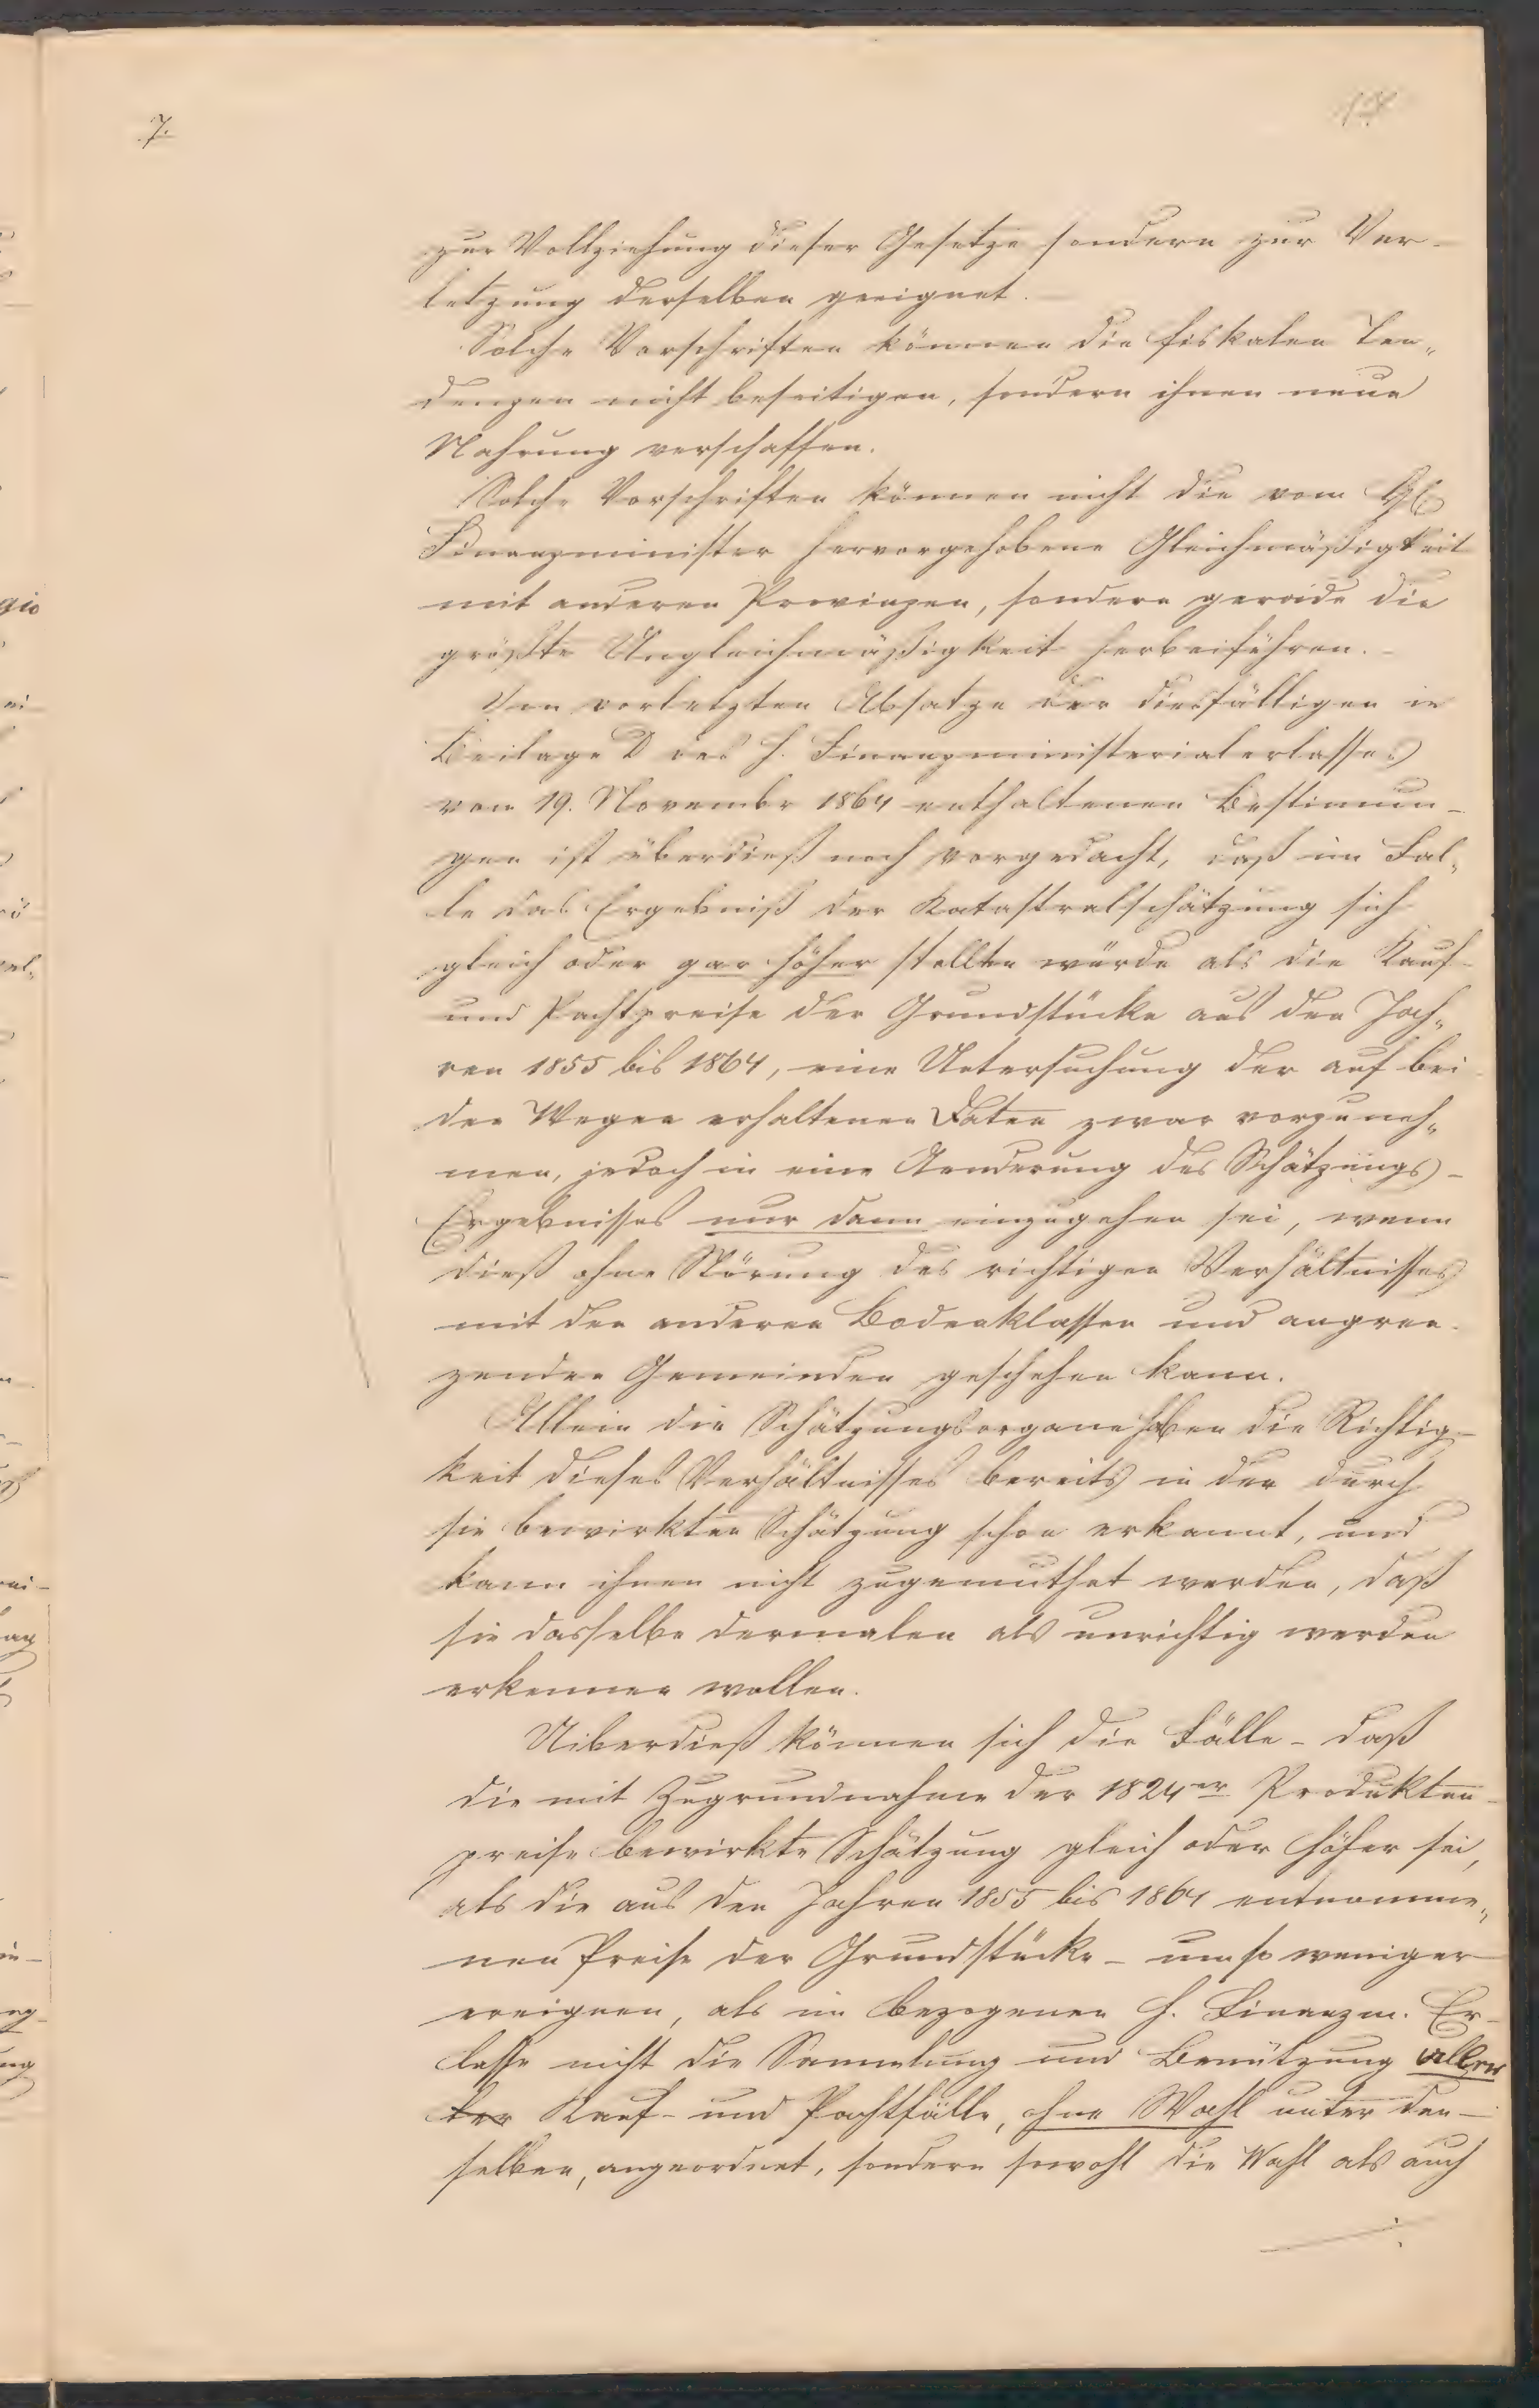 7.
zur Vollziehung dieser Gesetze sondern zur Ver-
letzung derselben geeignet.
Solche Vorschriften können die fiskalen Ten„
denzen nicht beseitigen, sondern ihnen neue
Nahrung verschaffen.
Solche Vorschriften können nicht die vom
Finanzminister hervorgehobene Gleichmäßigkeit
mit anderen Provinzen, sondern gerade die
größte Ungleichmäßigkeit herbeiführen. –
Im vorletzten Absatze der diesfälligen in
Beilage D des h. Finanzministerialerlasses
vom 19. Novembr 1864 enthaltenen Bestimmun-
gen ist überdieß noch vorgedacht, daß im Fal„
le das Ergebniß der Katastralschätzung sich
gleich oder gar höher stellen würde als die Kauf-
und Pachtpreise der Grundstücke aus den Jah„
ren 1855 bis 1864, eine Untersuchung der auf bei
den Wegen erhaltenen Daten zwar vorzuneh„
men, jedoch in eine Aenderung des Schätzungs-
Ergebnisses nur dann einzugehen sei, wenn
dieß ohne Störung des richtigen Verhältnisses
mit den anderen Bodenklassen und angren-
zenden Gemeinden geschehen kann.
Allein die Schätzungsorgane haben die Richtig-
keit dieses Verhältnisses bereits in der durch
sie bewirkten Schätzung schon erkannt, und
kann ihnen nicht zugemuthet werden, daß
sie dasselbe dermalen als unrichtig werden
erkennen wollen.
Uiberdieß können sich die Fälle – daß
die mit Zugrundnahme der 1824er Produkten-
preise bewirkte Schätzung gleich oder höher sei,
als die aus den Jahren 1855 bis 1864 entnomme„
nen Preise der Grundstücke – umso weniger
ereignen, als im bezogenen h. Finanzm. Er-
lasse nicht die Sammlung und Benützung aller
der Kauf- und Pachtfälle, ohne Wahl unter den-
selben, angeordnet, sondern sowohl die Wahl als auch